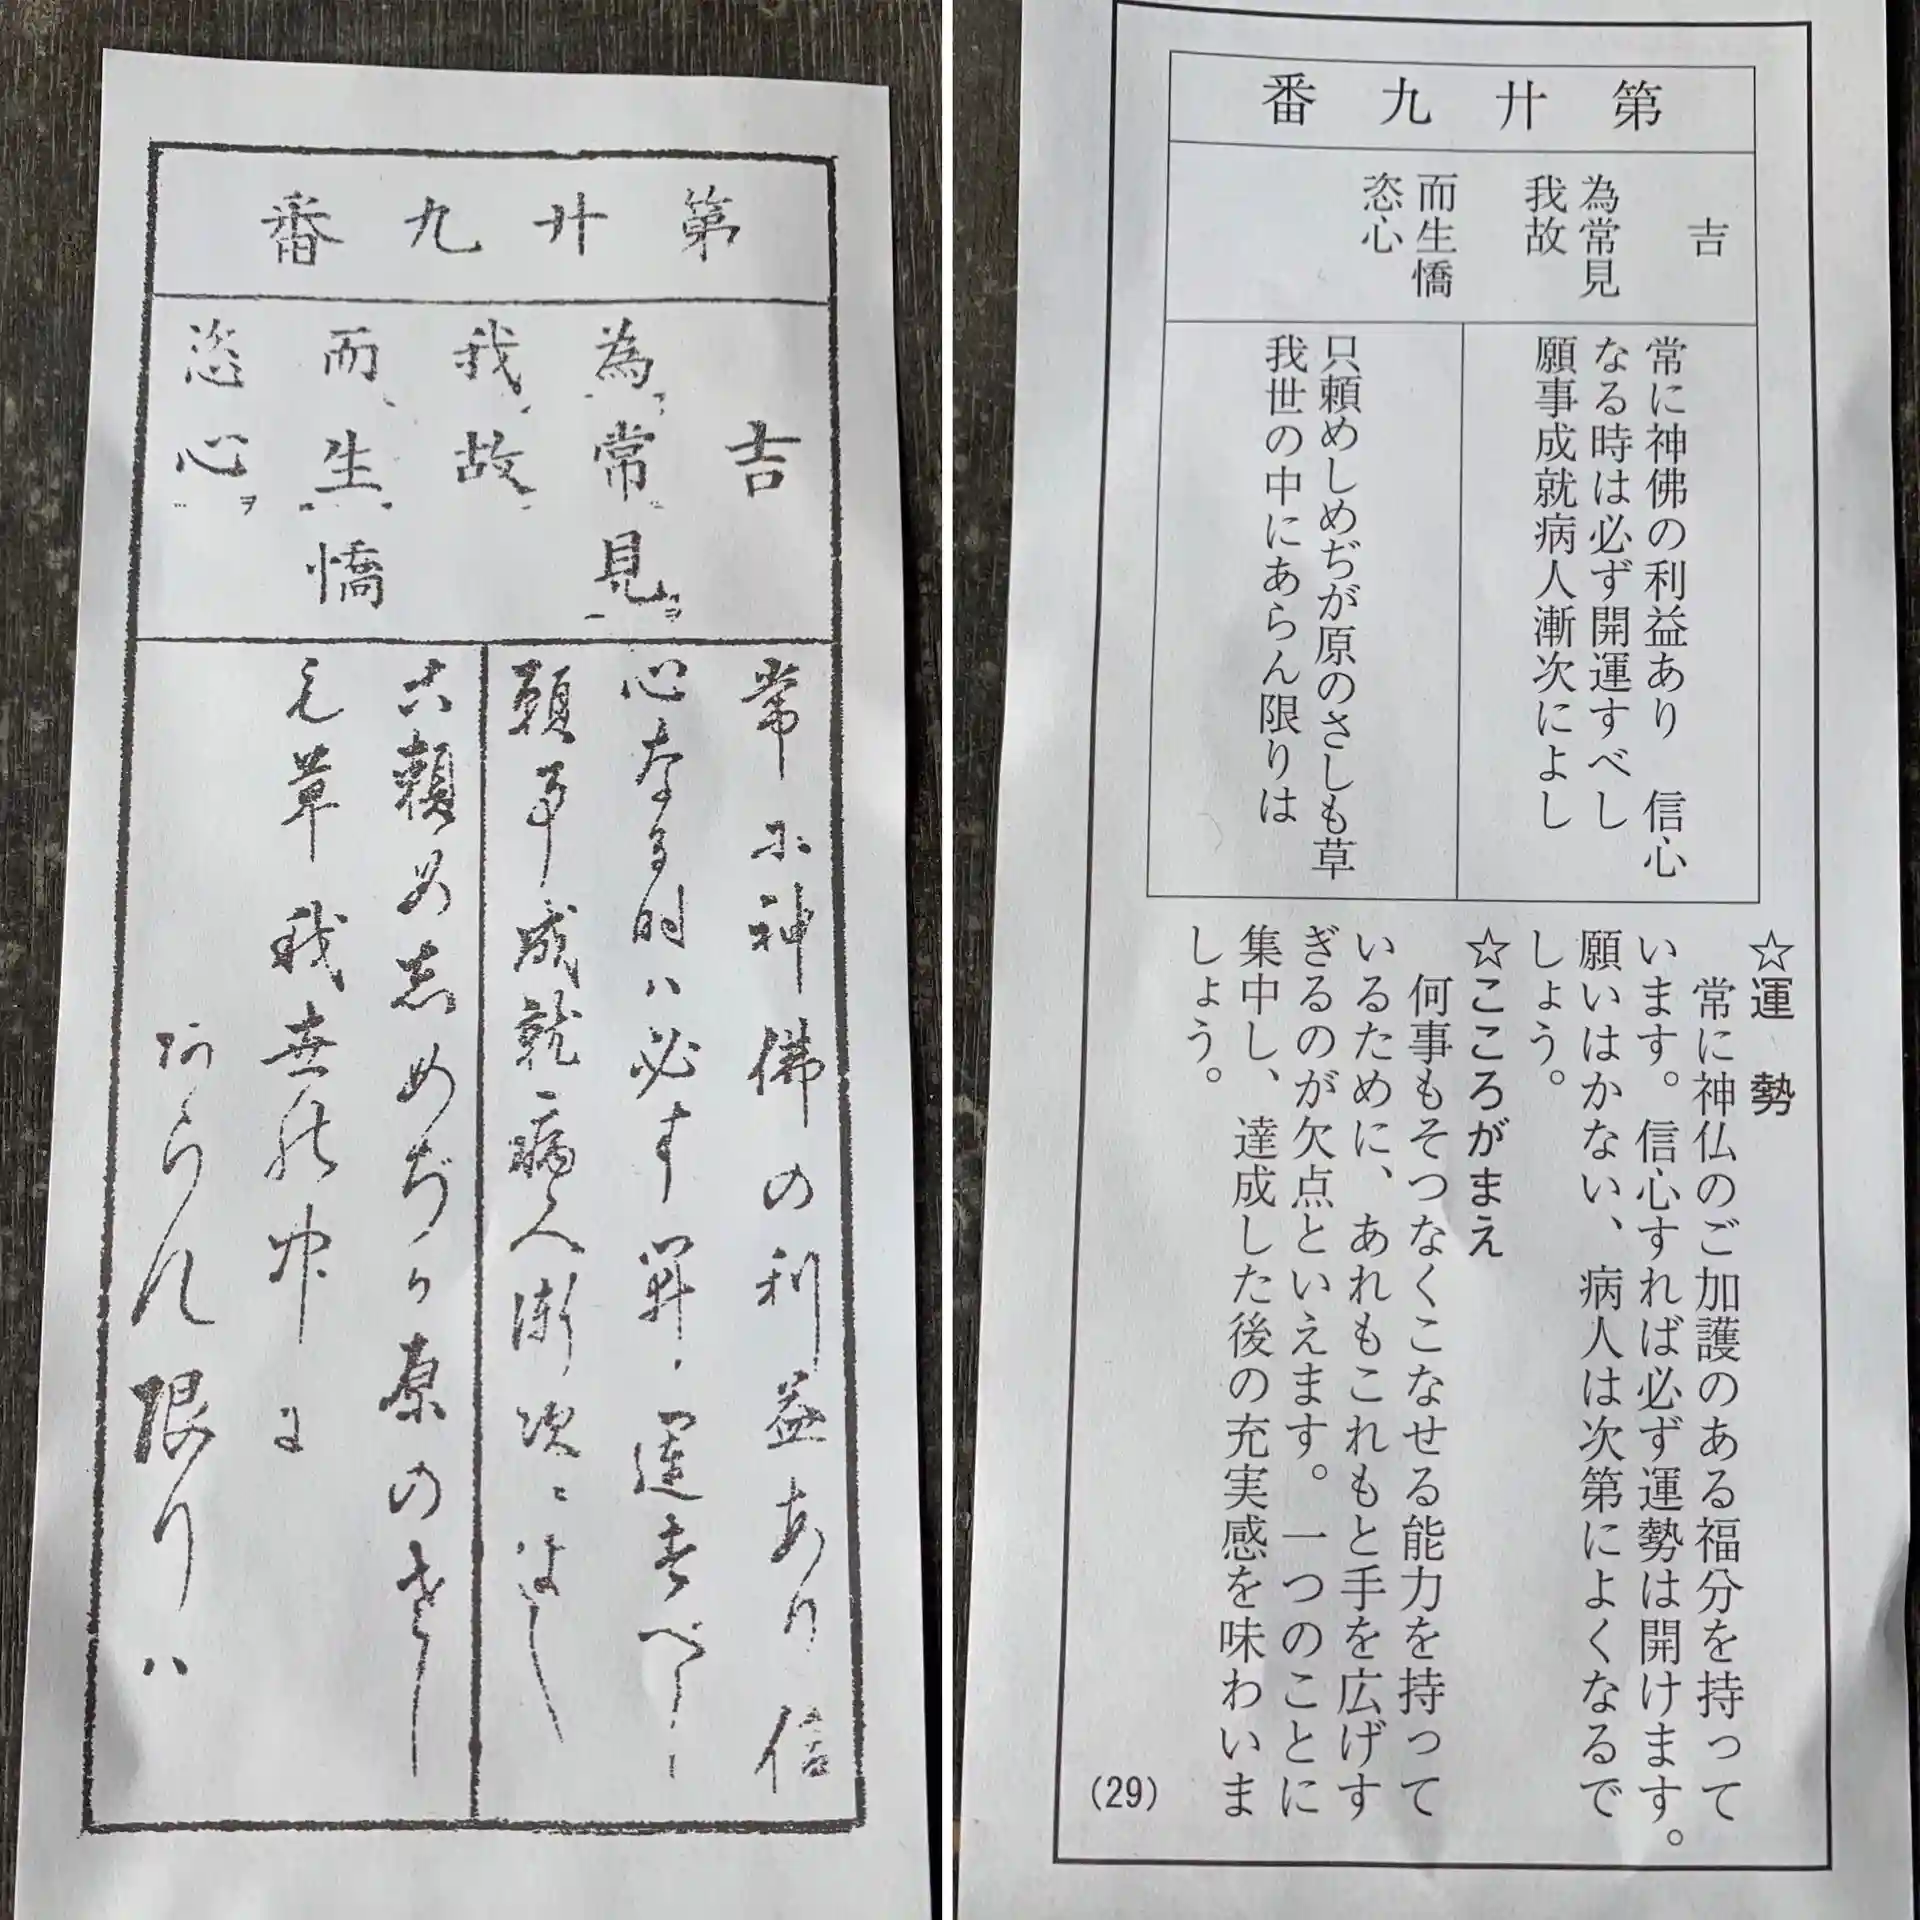 第廿九番
吉
為常見
我故
而生憍
恣心
常に神佛の利益あり信
心なる時ハ必す開運すべし
願事成就病人漸次ニよし
只頼めしめぢが原のさし
も草我世の中に
あらん限りハ
第廿九番
吉
為常見
我故
而生憍
恣心
常に神佛の利益あり 信心
なる時は必ず開運すべし
願事成就病人漸次によし
只頼めしめぢが原のさしも草
我世の中にあらん限りは
☆運 勢
常に神仏のご加護のある福分を持って
います。信心すれば必ず運勢は開けます。
願いはかない、病人は次第によくなるで
しょう。
☆こころがまえ
何事もそつなくこなせる能力を持って
いるために、あれもこれもと手を広げす
ぎるのが欠点といえます。一つのことに
集中し、達成した後の充実感を味わいま
しょう。
(29)